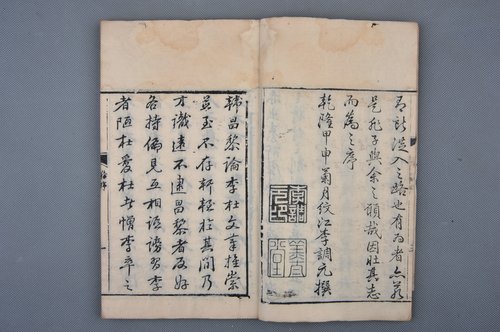 有計造入之路也有為者亦若
是非子與余之願哉因壯其志
而為之序
乾隆甲申菊月綬江李調元撰
韓昌黎論李杜文章極崇
並至不存軒輊於其間乃
才識遠不逮昌黎者反好
各持偏見互相謗習李
者陋杜愛杜者憎李卒之